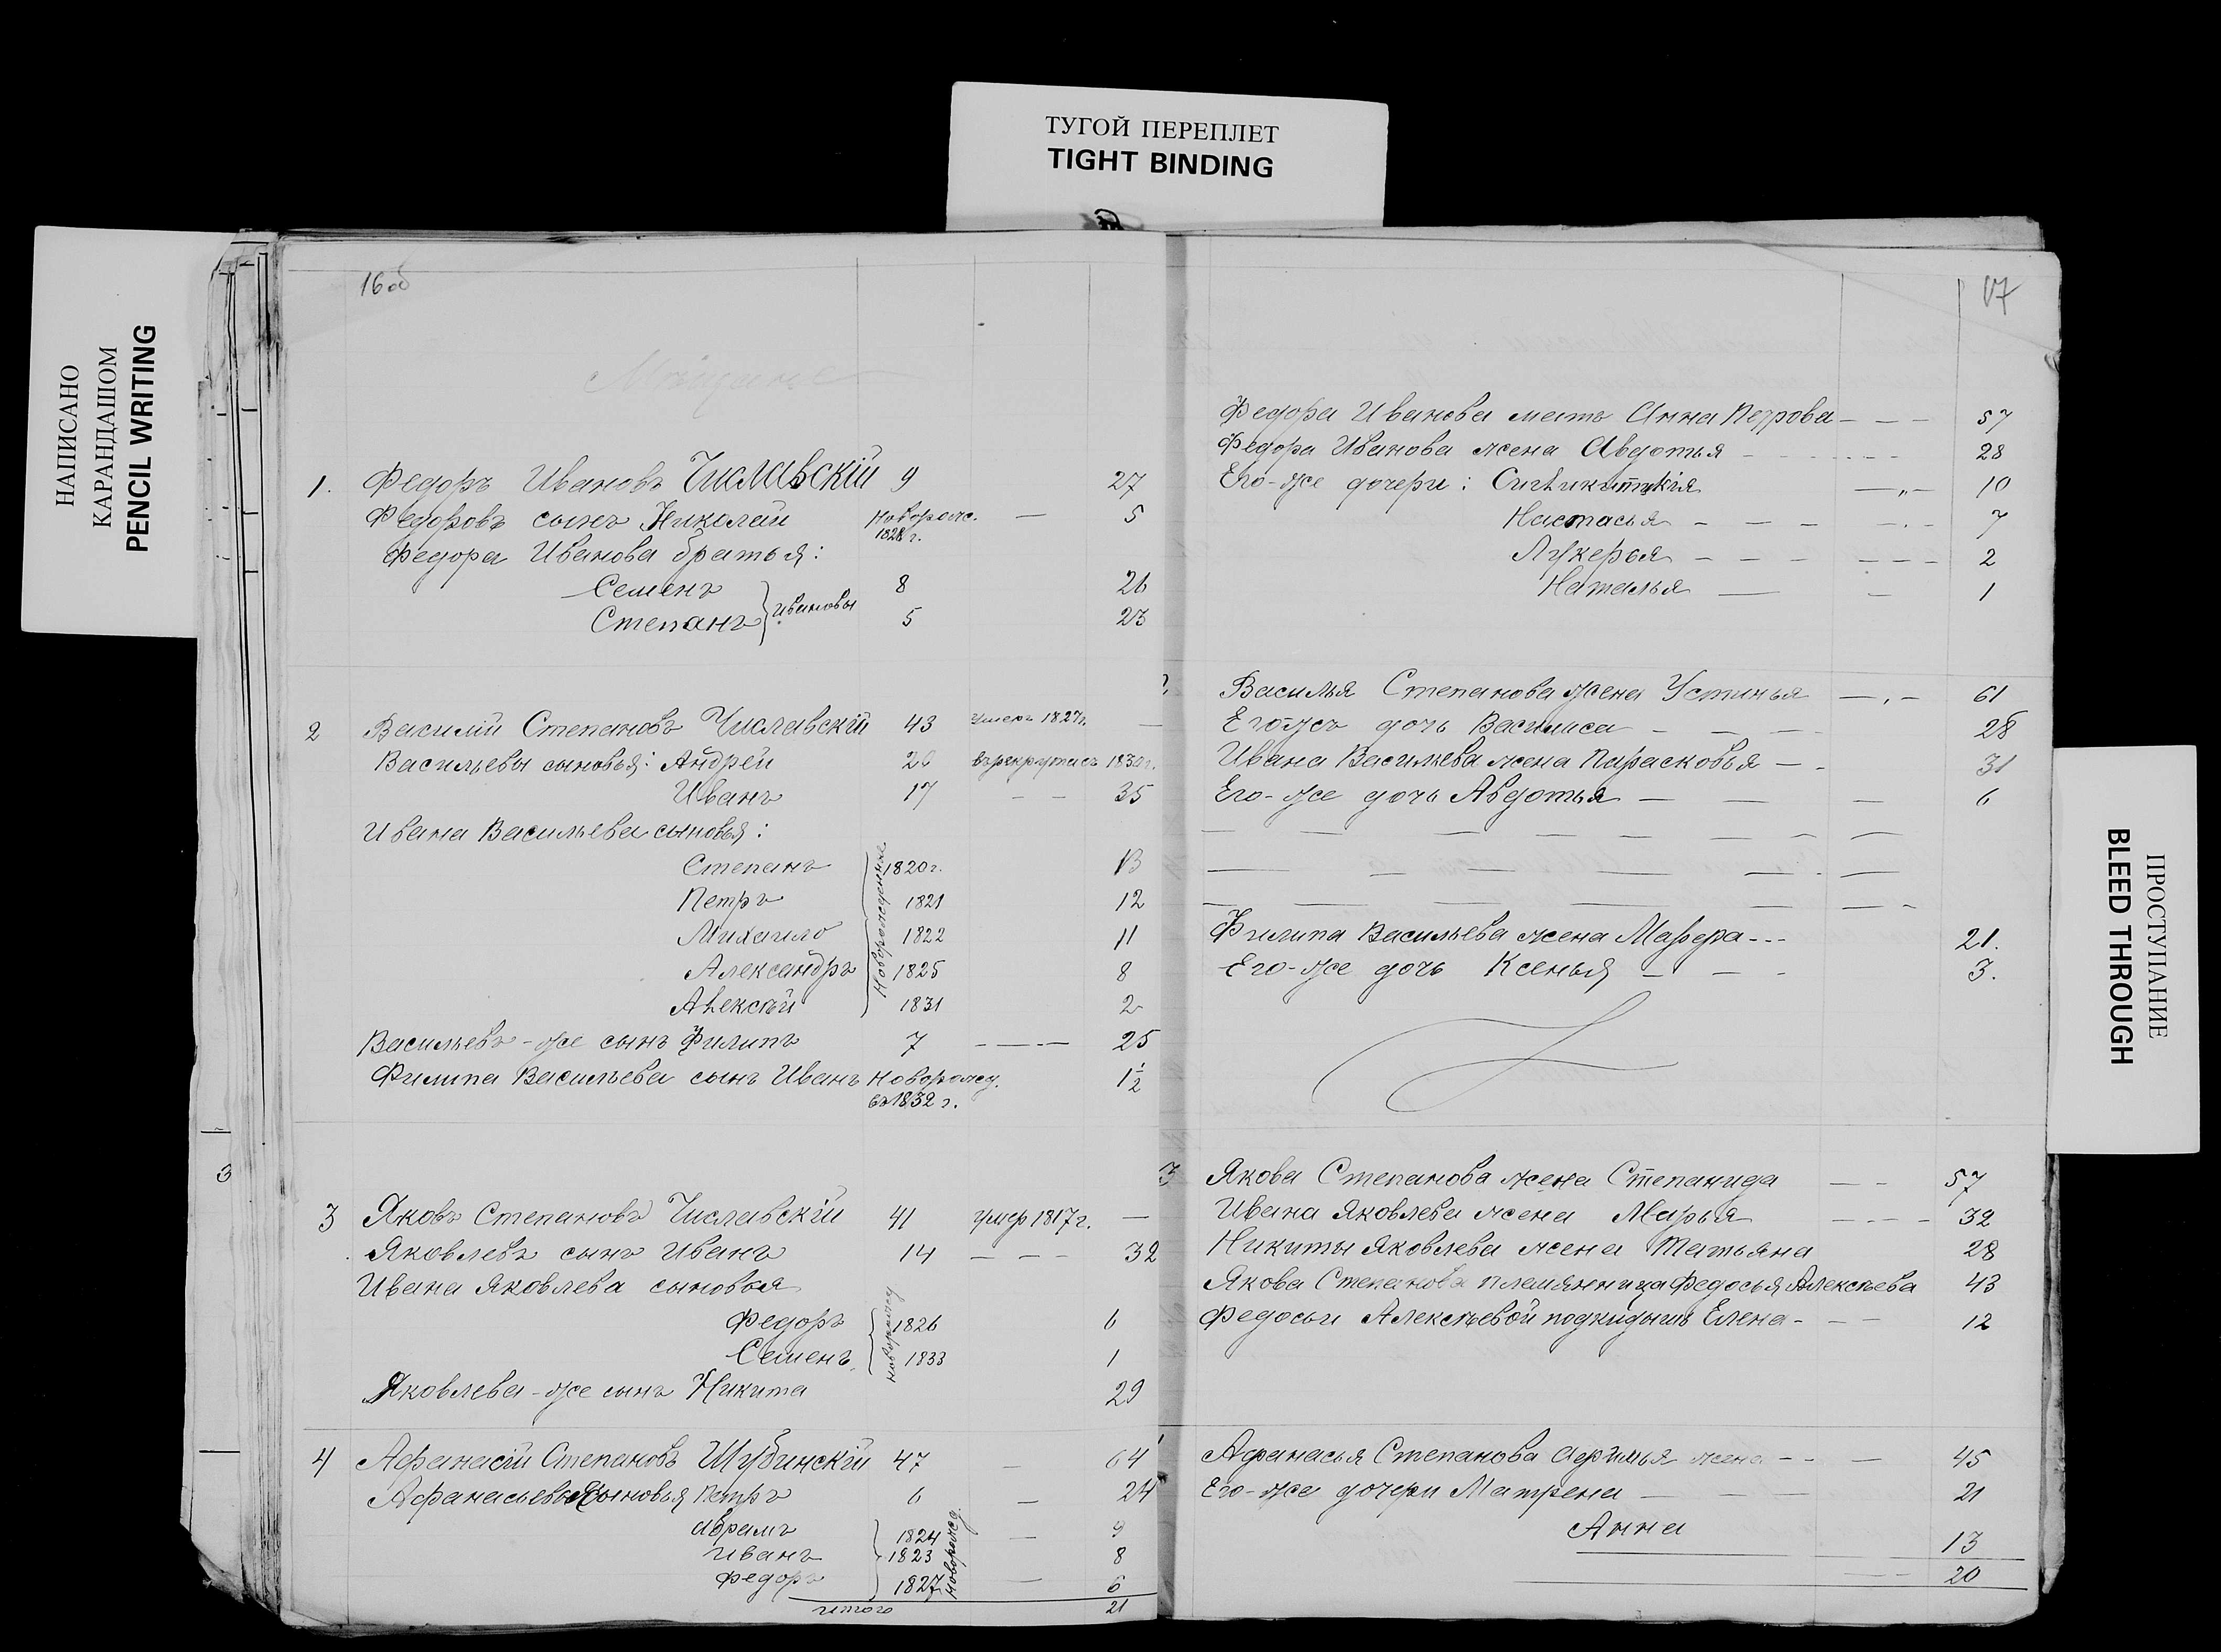 ТУГОЙ ПЕРЕПЛЕТ
TIGHT BINDING
НАПИСАНО
КАРАНДАШОМ
PENCIL WRITING
ПРОСТУПАНИЕ
BLEED THROUGH
16об
1. Федоръ Ивановъ Числавскій 9 27
Федоровъ сынъ Николай Новорожд. — 5
1828 г.
Федора Иванова братья:
Семенъ 8 26
Степанъ } Ивановы 5 23
2 Василій Степановъ Числавскій 43 умеръ 1827г. —
Васильевы сыновья: Андрей 20 въ рекрутахъ 1830г.
Иванъ 17 — — 35
Ивана Васильева сыновья:
Степанъ 1820г. 13
Петръ 1821 12
Михаило 1822 11
Александръ 1825 8
Алексѣй 1831 2
Новорожденные
Васильевъ-же сынъ Филипъ 7 — — — 25
Филипа Васильева сынъ Иванъ Новорожд. 1½
въ 1832 г.
3
3 Яковъ Степановъ Числавскій 41 умер 1817г. —
Яковлевъ сынъ Иванъ 14 — — — 32
Ивана Яковлева сыновья
Федоръ 1826 6
Семенъ 1833 1
новорожд
Яковлева-же сынъ Никита 29
4 Афанасій Степановъ Шубинскій 47 — 64
Афанасьевы сыновья Петръ 6 — 24
Абрамъ 1824 — 9
Иванъ 1823 8
Федоръ 1827 — 6
новорожд.
итого 21
17
Федора Иванова мать Анна Петрова — — — 57
Федора Иванова жена Авдотья 28
Его-же дочери: 10
Настасья — — — 7
Лукерья — — — 2
Наталья — — 1
Василья Степанова жена Устинья — . — 61
Его-жъ дочь Василиса — — — 28
Ивана Васильева жена Парасковья — - 31
Его-же дочь Авдотья — — — 6
Филипа Васильева жена --- 21.
Его-же дочь Ксенья — — - 3.
3 Якова Степанова жена Степанида — — 57
Ивана Яковлева жена Марья — - - — 32
Никиты Яковлева жена Татьяна 28
Якова Степанова племянница Федосья Алексѣева 43
Федосьи Алексѣевой подкидышъ Елена - — — 12
Афанасья Степанова жена - - — 45
Его-же дочери Матрена — — 21
Анна 13
20